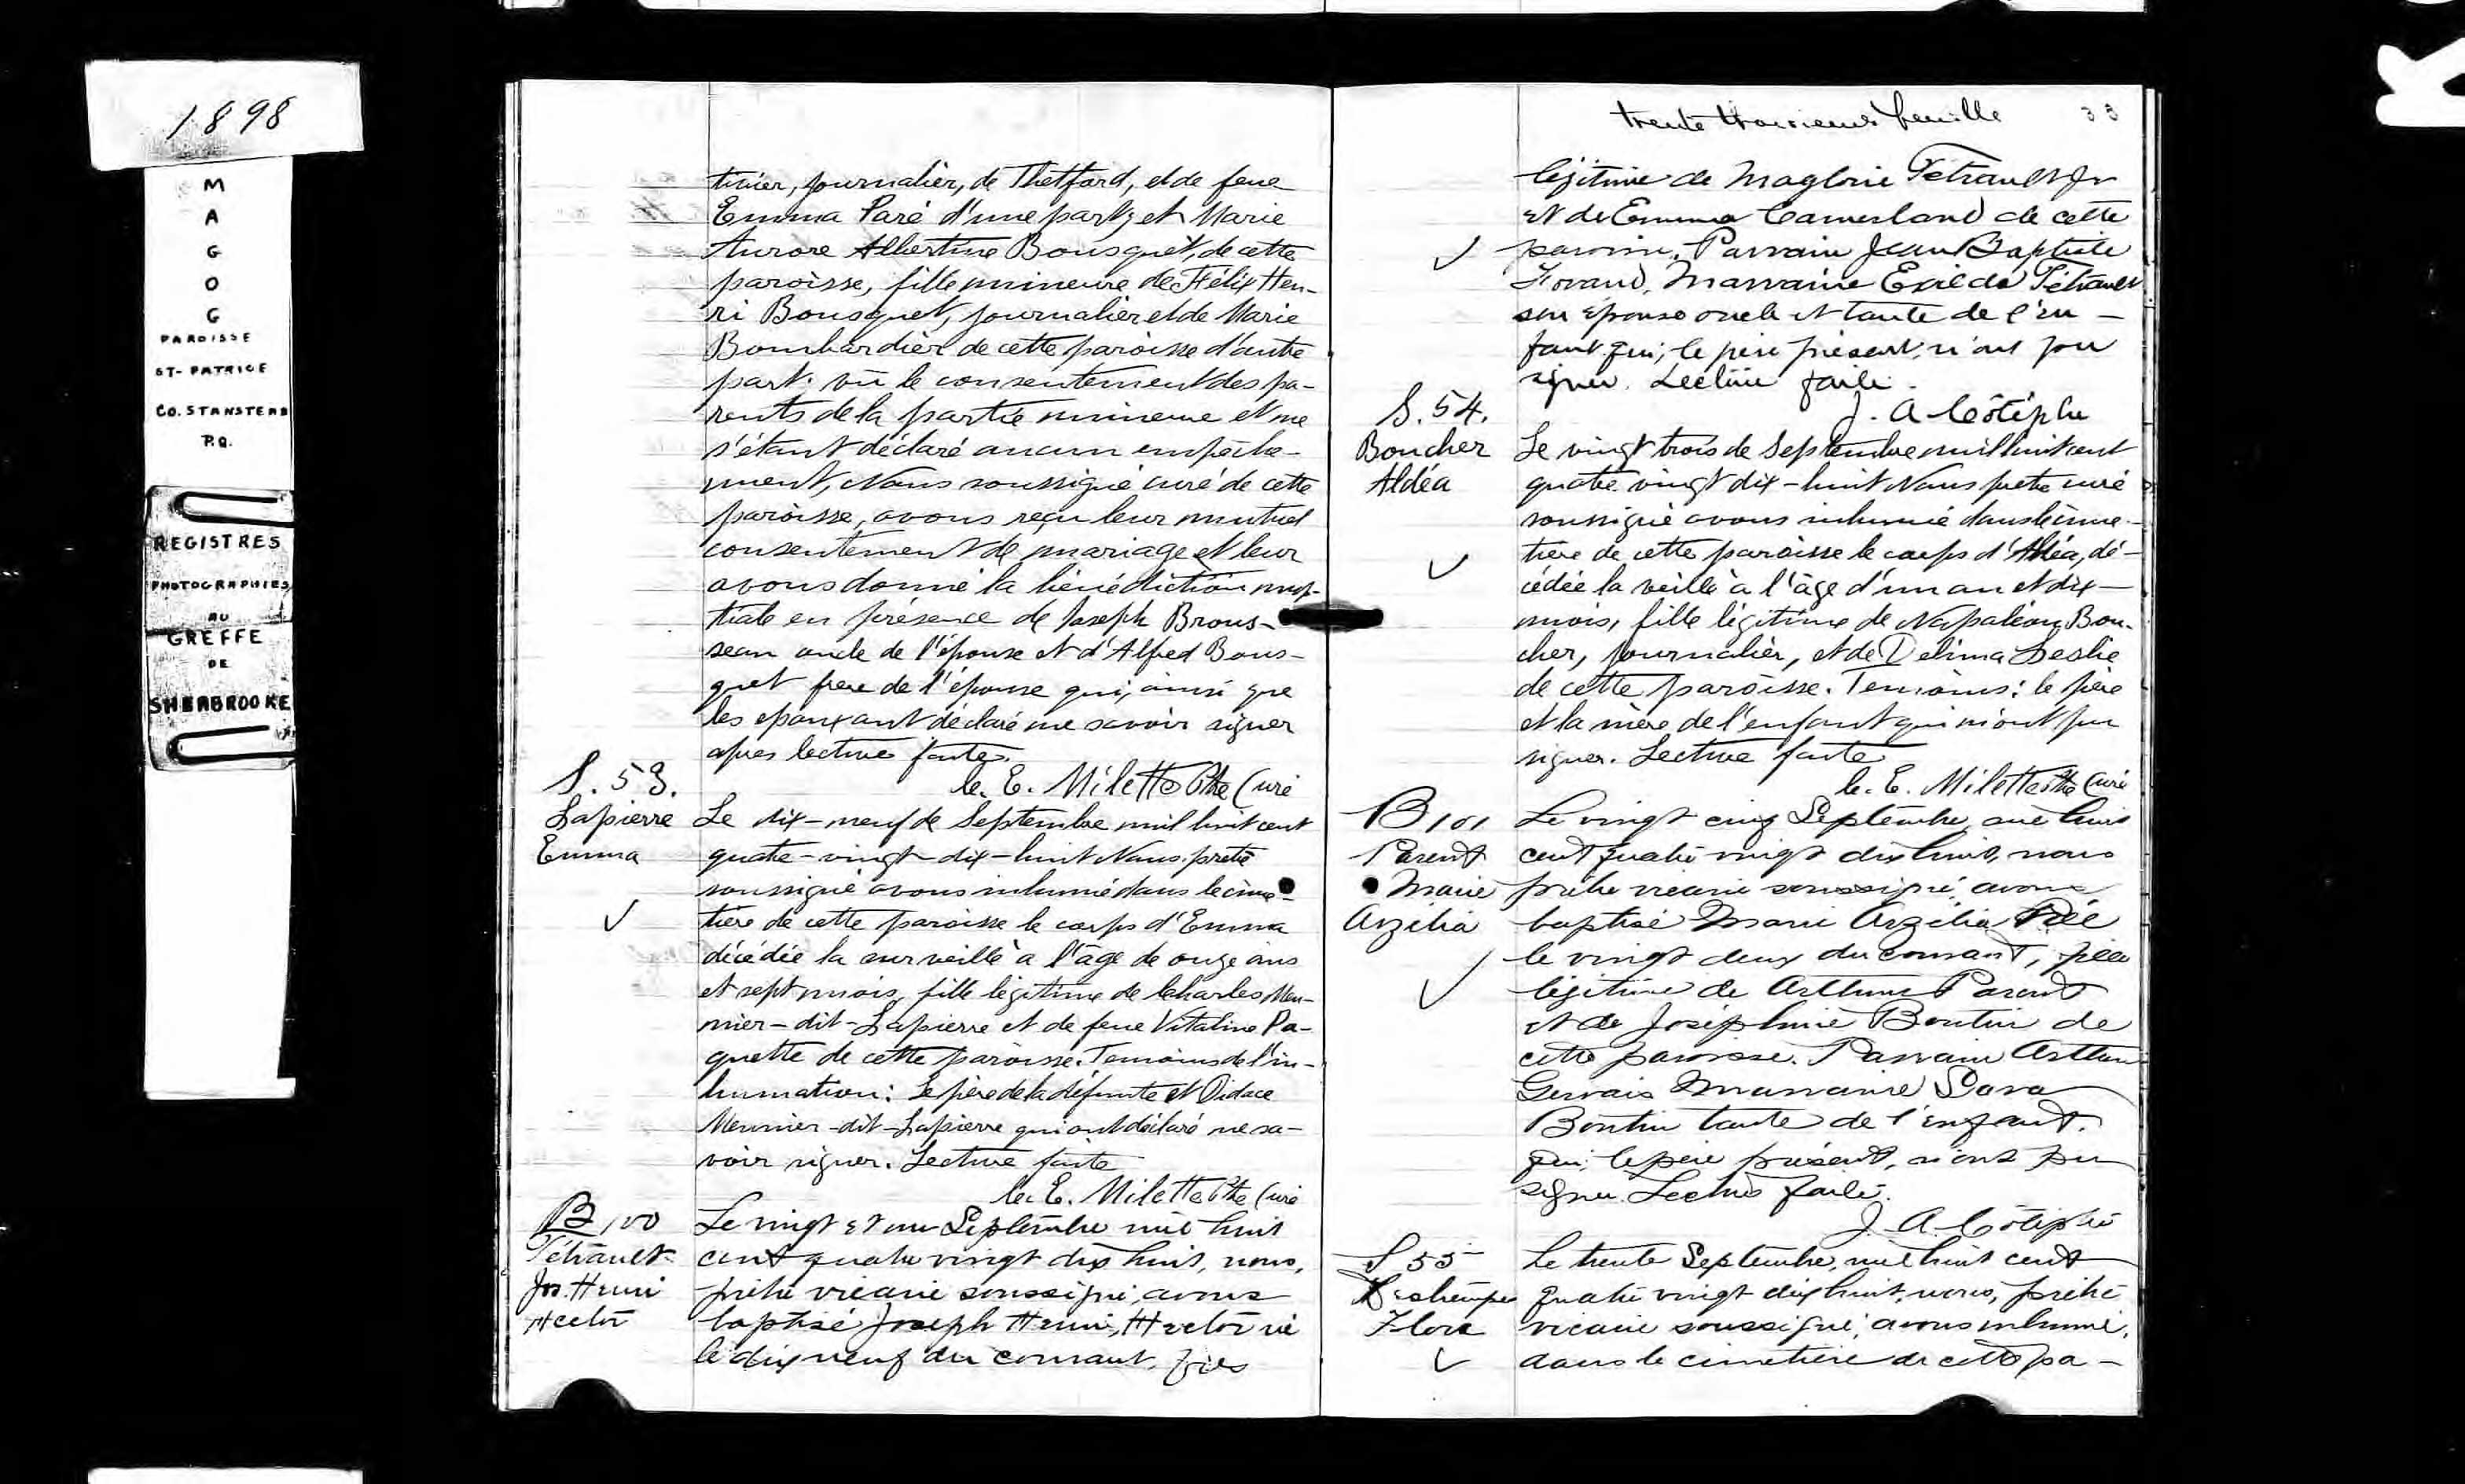 1898
M
A
G
O
G
PAROISSE
ST-PATRICE
CO. STANSTEAD
P.Q.
REGISTRES
PHOTOGRAPHIES
AU
GREFFE
DE
SHERBROOKE
tinier, journalier, de Thetford, et de feue
Emma Paré d'une part; et Marie
Aurore Albertine Bousquet, de cette
paroisse, fille mineure de Félix Hen-
ri Bousquet, journalier et de Marie
Bombardier de cette paroisse d'autre
part. vû le consentement des pa-
rents de la partie mineure et ne
s'étant déclaré aucun empêche-
ment, Nous soussigné curé de cette
paroisse, avons reçu leur mutuel
consentement de mariage et leur
avons donné la bénédiction nup-
tiale en présence de Joseph Brous-
seau oncle de l'épouse et d'Alfred Bous-
quet frere de l'épouse qui, ainsi que
les epoux ont déclaré ne savoir signer
apres lecture faite.
C. E. Milette Ptre Curé
S. 53.
Lapierre
Emma
Le dix-neuf de Septembre mil huit cent
quatre-vingt-dix-huit Nous prêtre
soussigné avons inhumé dans le cime-
tière de cette paroisse le corps d'Emma
décédée la surveille à l'âge de onze ans
et sept mois, fille légitime de Charles Meu-
nier-dit-Lapierre et de feue Vitaline Pa-
quette de cette paroisse. Temoins de l'in-
humation: Le père de la défunte et Didace
Meunier-dit-Lapierre qui ont déclaré ne sa-
voir signer. Lecture faite
C. E. Milette Ptre Curé
B 100
Tétrault
Jos. Henri
Hector
Le vingt et un Septembre mil huit
cent quatre vingt dix huit, nous,
prêtre vicaire soussigné, avons
baptisé Joseph Henri, Hector né
le dix neuf du courant, fils
trente troisieme feuille 33
légitime de Magloire Tétrault Jr
et de Emma Camerland de cette
paroisse. Parrain Jean Baptiste
Forand, Marraine Exilda Tétrault
son épouse oncle et tante de l'en-
fant qui, le père présent, n'ont pu
signer. Lecture faite.
J. A. Côté ptre
S. 54.
Boucher
Aldéa
Le vingt trois de Septembre mil huit cent
quatre vingt dix-huit Nous pretre curé
soussigné avons inhumé dans le cime-
tiere de cette paroisse le corps d'Aldéa, dé-
cédée la veille à l'âge d'un an et dix-
mois, fille légitime de Napoléon Bou-
cher, journalier, et de Délima Leslie
de cette paroisse. Temoins: le père
et la mère de l'enfant qui n'ont pu
signer. Lecture faite
C. E. Milette Ptre Curé
B 101
Parent
Marie
Arzélia
Le vingt cinq Septembre, mil huit
cent quatre vingt dix huit, nous
prêtre vicaire soussigné, avons
baptisé Marie Arzélia née
le vingt deux du courant, fille
légitime de Arthur Parent
et de Joséphine Boutin de
cette paroisse. Parrain Arthur
Gervais Marraine Sara
Boutin tante de l'enfant.
qui, le père présent, n'ont pu
signer. Lecture faite.
J. A. Côté ptre
S 55
Deschamps
Flora
Le trente Septembre, mil huit cent
quatre vingt dix huit, nous, prêtre
vicaire soussigné, avons inhumé,
dans le cimetière de cette pa-